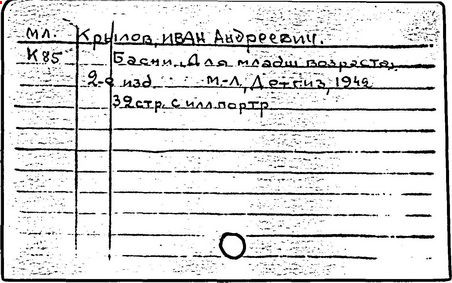 мл. Крылов, ИВАН Андреевич.
К85 Басни. Для младш возраста,
2-е изд М-Л, Детгиз, 1942
32стр. с илл. портр